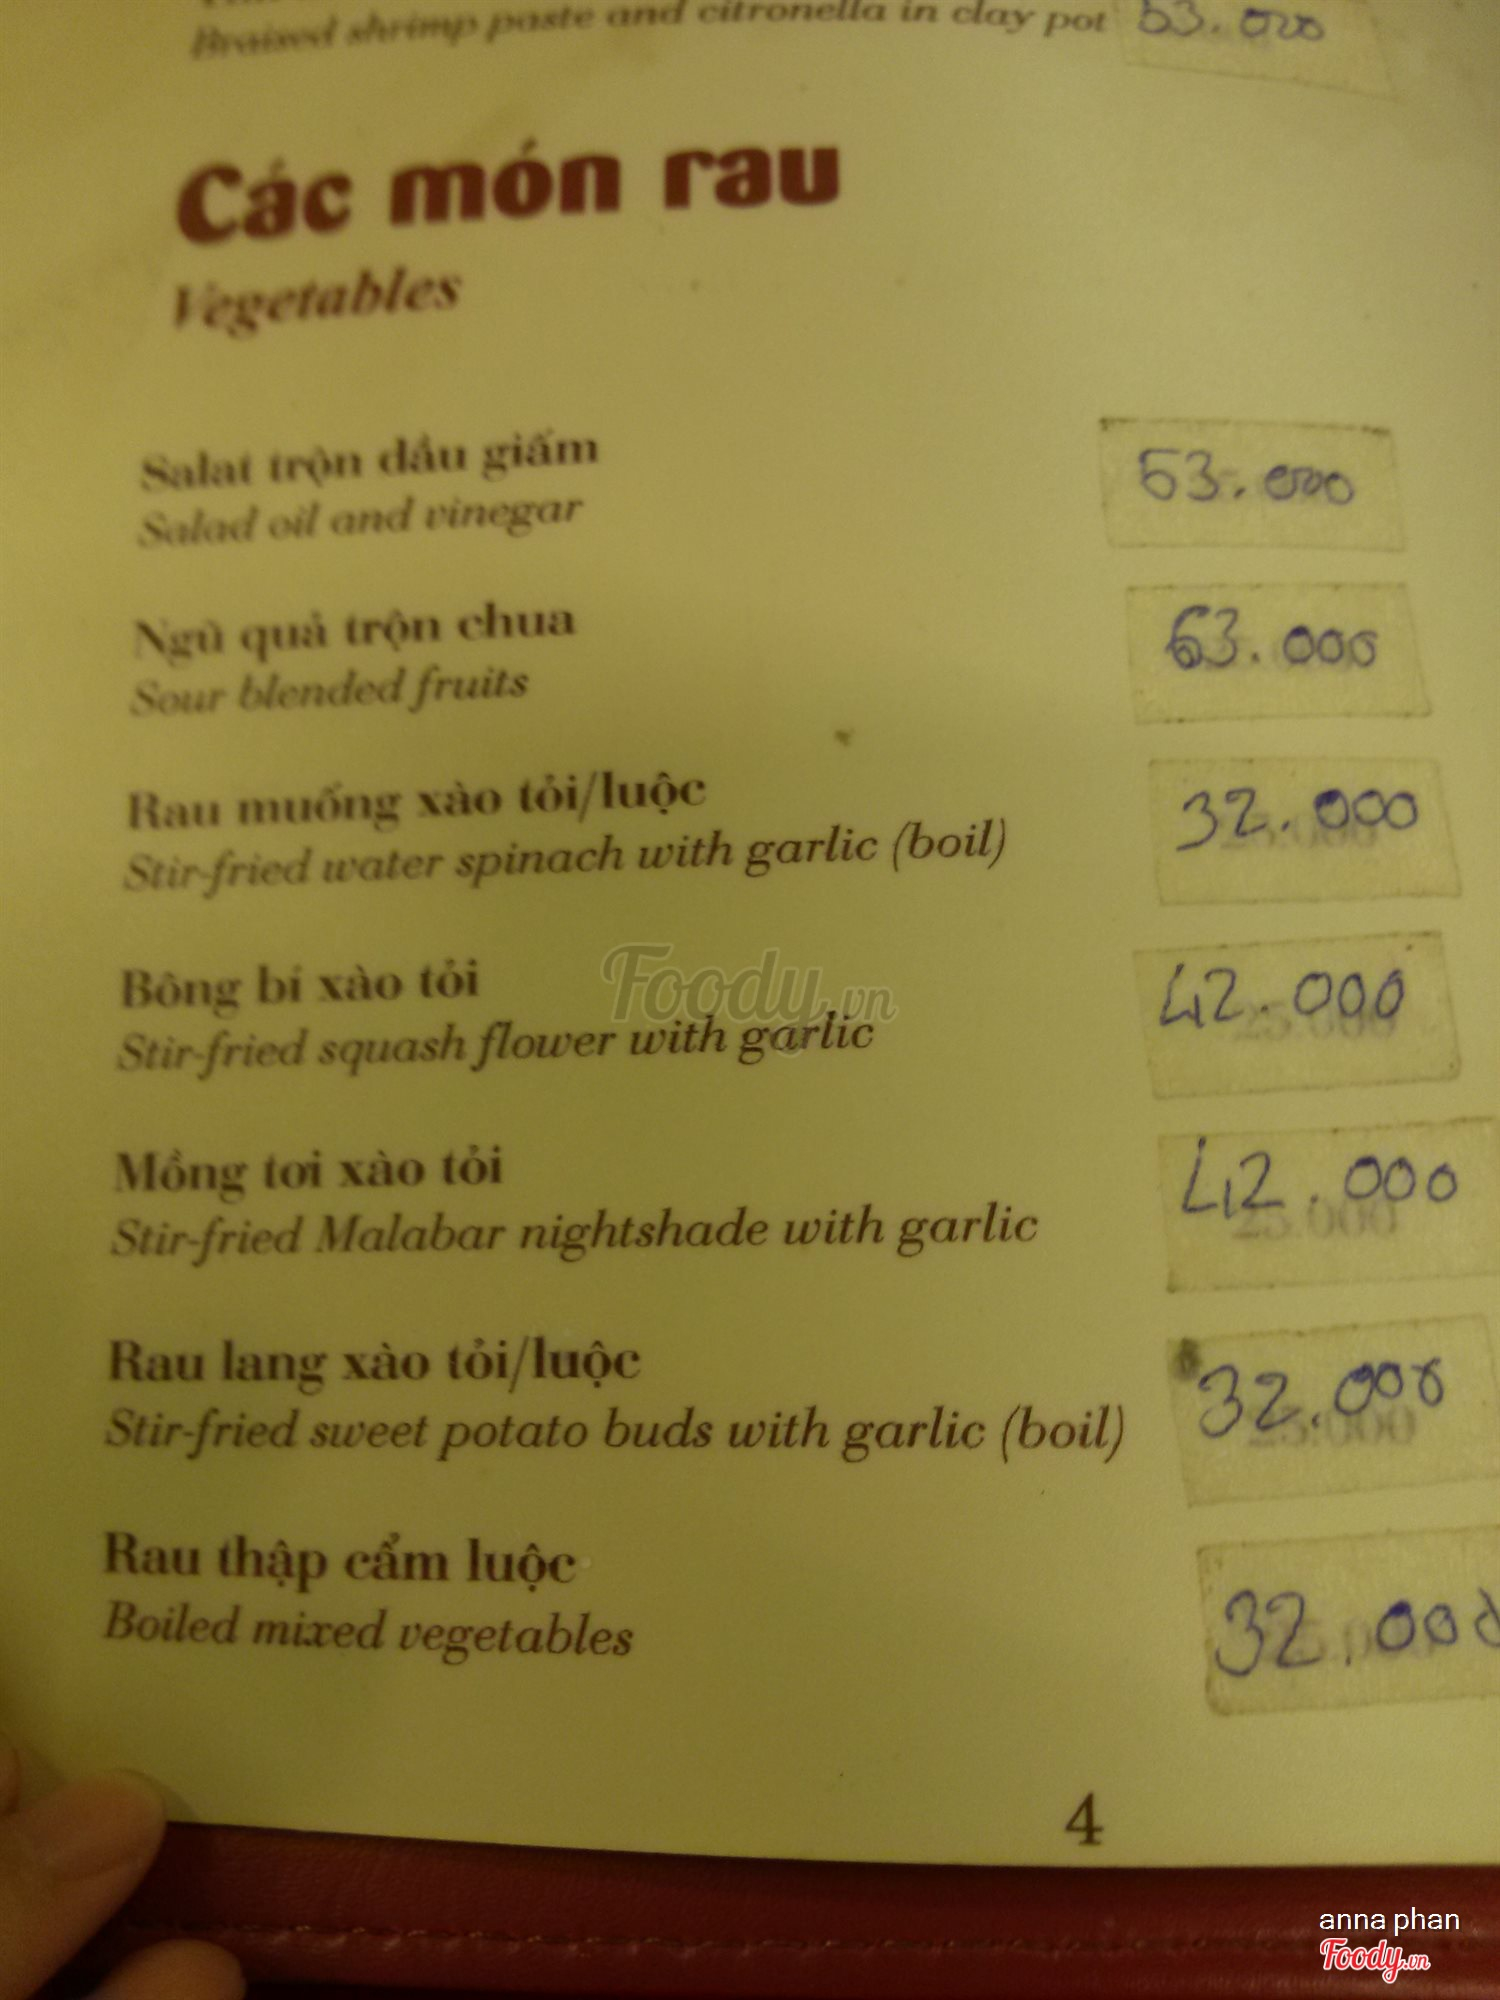 Braised shrimp paste and citronella in clay pot 53.000
Các món rau
Vegetables
Salat trộn dầu giấm 53.000
Salad oil and vinegar
Ngũ quả trộn chua 63.000
Sour blended fruits
Rau muống xào tỏi/luộc 32.000
Stir-fried water spinach with garlic (boil)
Bông bí xào tỏi 42.000
Stir-fried squash flower with garlic
Foody.vn
Mồng tơi xào tỏi 42.000
Stir-fried Malabar nightshade with garlic
Rau lang xào tỏi/luộc 32.000
Stir-fried sweet potato buds with garlic (boil)
Rau thập cẩm luộc 32.000
Boiled mixed vegetables
4
anna phan
Foody.vn